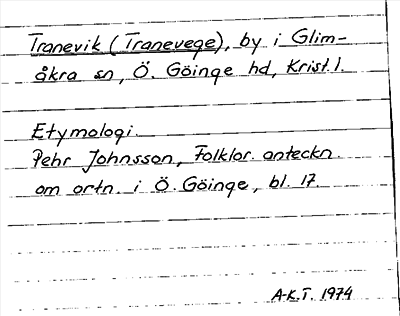 Tranevik (Tranevege), by i Glim-
åkra sn, Ö. Göinge hd, Krist.l.
Etymologi.
Pehr Johnsson, Folklor. anteckn.
om ortn. i Ö. Göinge, bl. 17.
A-K.T. 1974